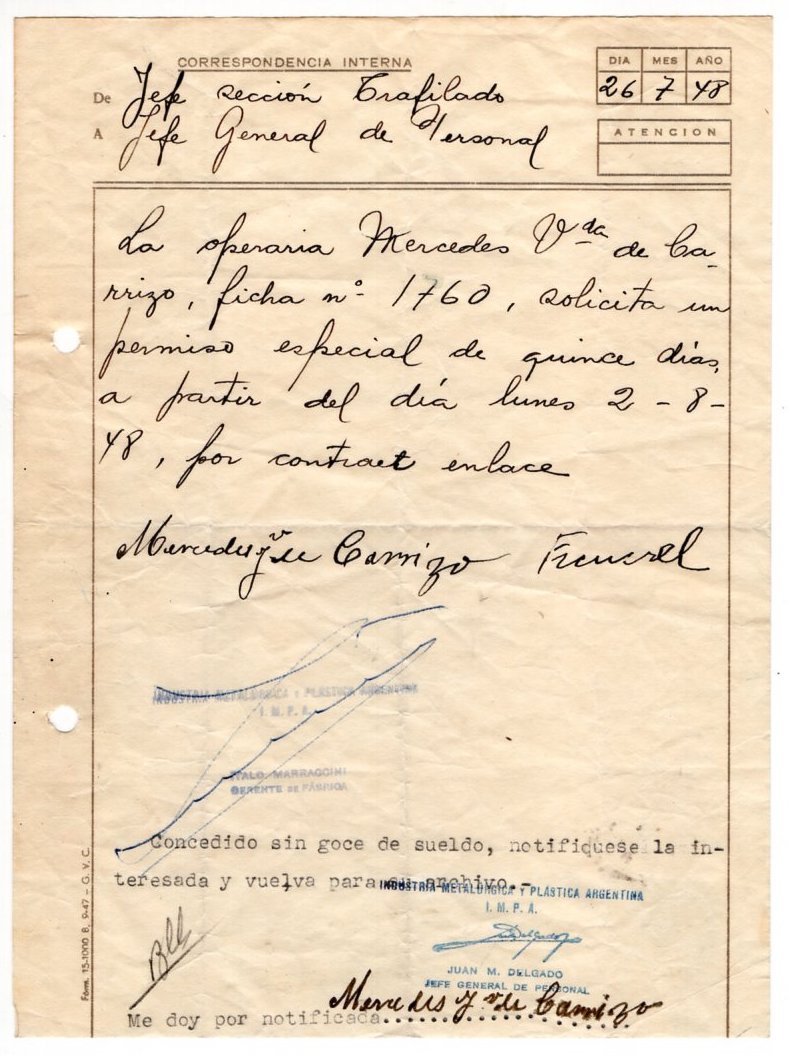 CORRESPONDENCIA INTERNA
DIA MES AÑO
26 7 48
De Jefe sección Trafilado
A Jefe General de Personal
ATENCION
La operaria Mercedes Vda de Ca-
rrizo, ficha nº 1760, solicita un
permiso especial de quince días,
a partir del día lunes 2-8-
48, por contraet enlace
Mercedes de Carrizo
INDUSTRIA METALURGICA Y PLÁSTICA ARGENTINA
I. M. P. A.
ITALO MARRACCINI
GERENTE DE FÁBRICA
Concedido sin goce de sueldo, notifiquese la in-
teresada y vuelva para su archivo.-
INDUSTRIA METALÚRGICA Y PLÁSTICA ARGENTINA
I. M. P. A.
JUAN M. DELGADO
JEFE GENERAL DE PERSONAL
Me doy por notificada Mercedes de Carrizo
Fórm. 15-1000 B. 9-47 - G. V. C.